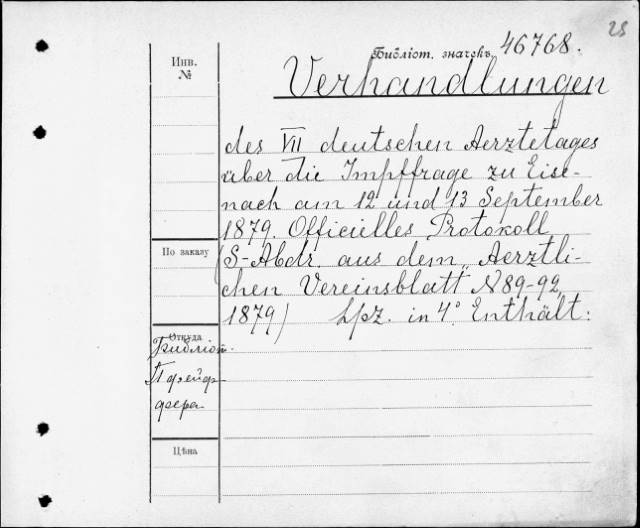 28
Библіот. значекъ 46768.
Инв.
№
Verhandlungen
des VII deutschen Aerztetages
über die Impffrage zu Eise-
nach am 12 und 13 September
1879. Officielles Protokoll
По заказу
(S-Abdr. aus dem „Aerztli-
chen Vereinsblatt" N 89-92,
1879) Lpz. in 4° Enthält:
Откуда
Библіот.
Пфейф-
фера
Цѣна